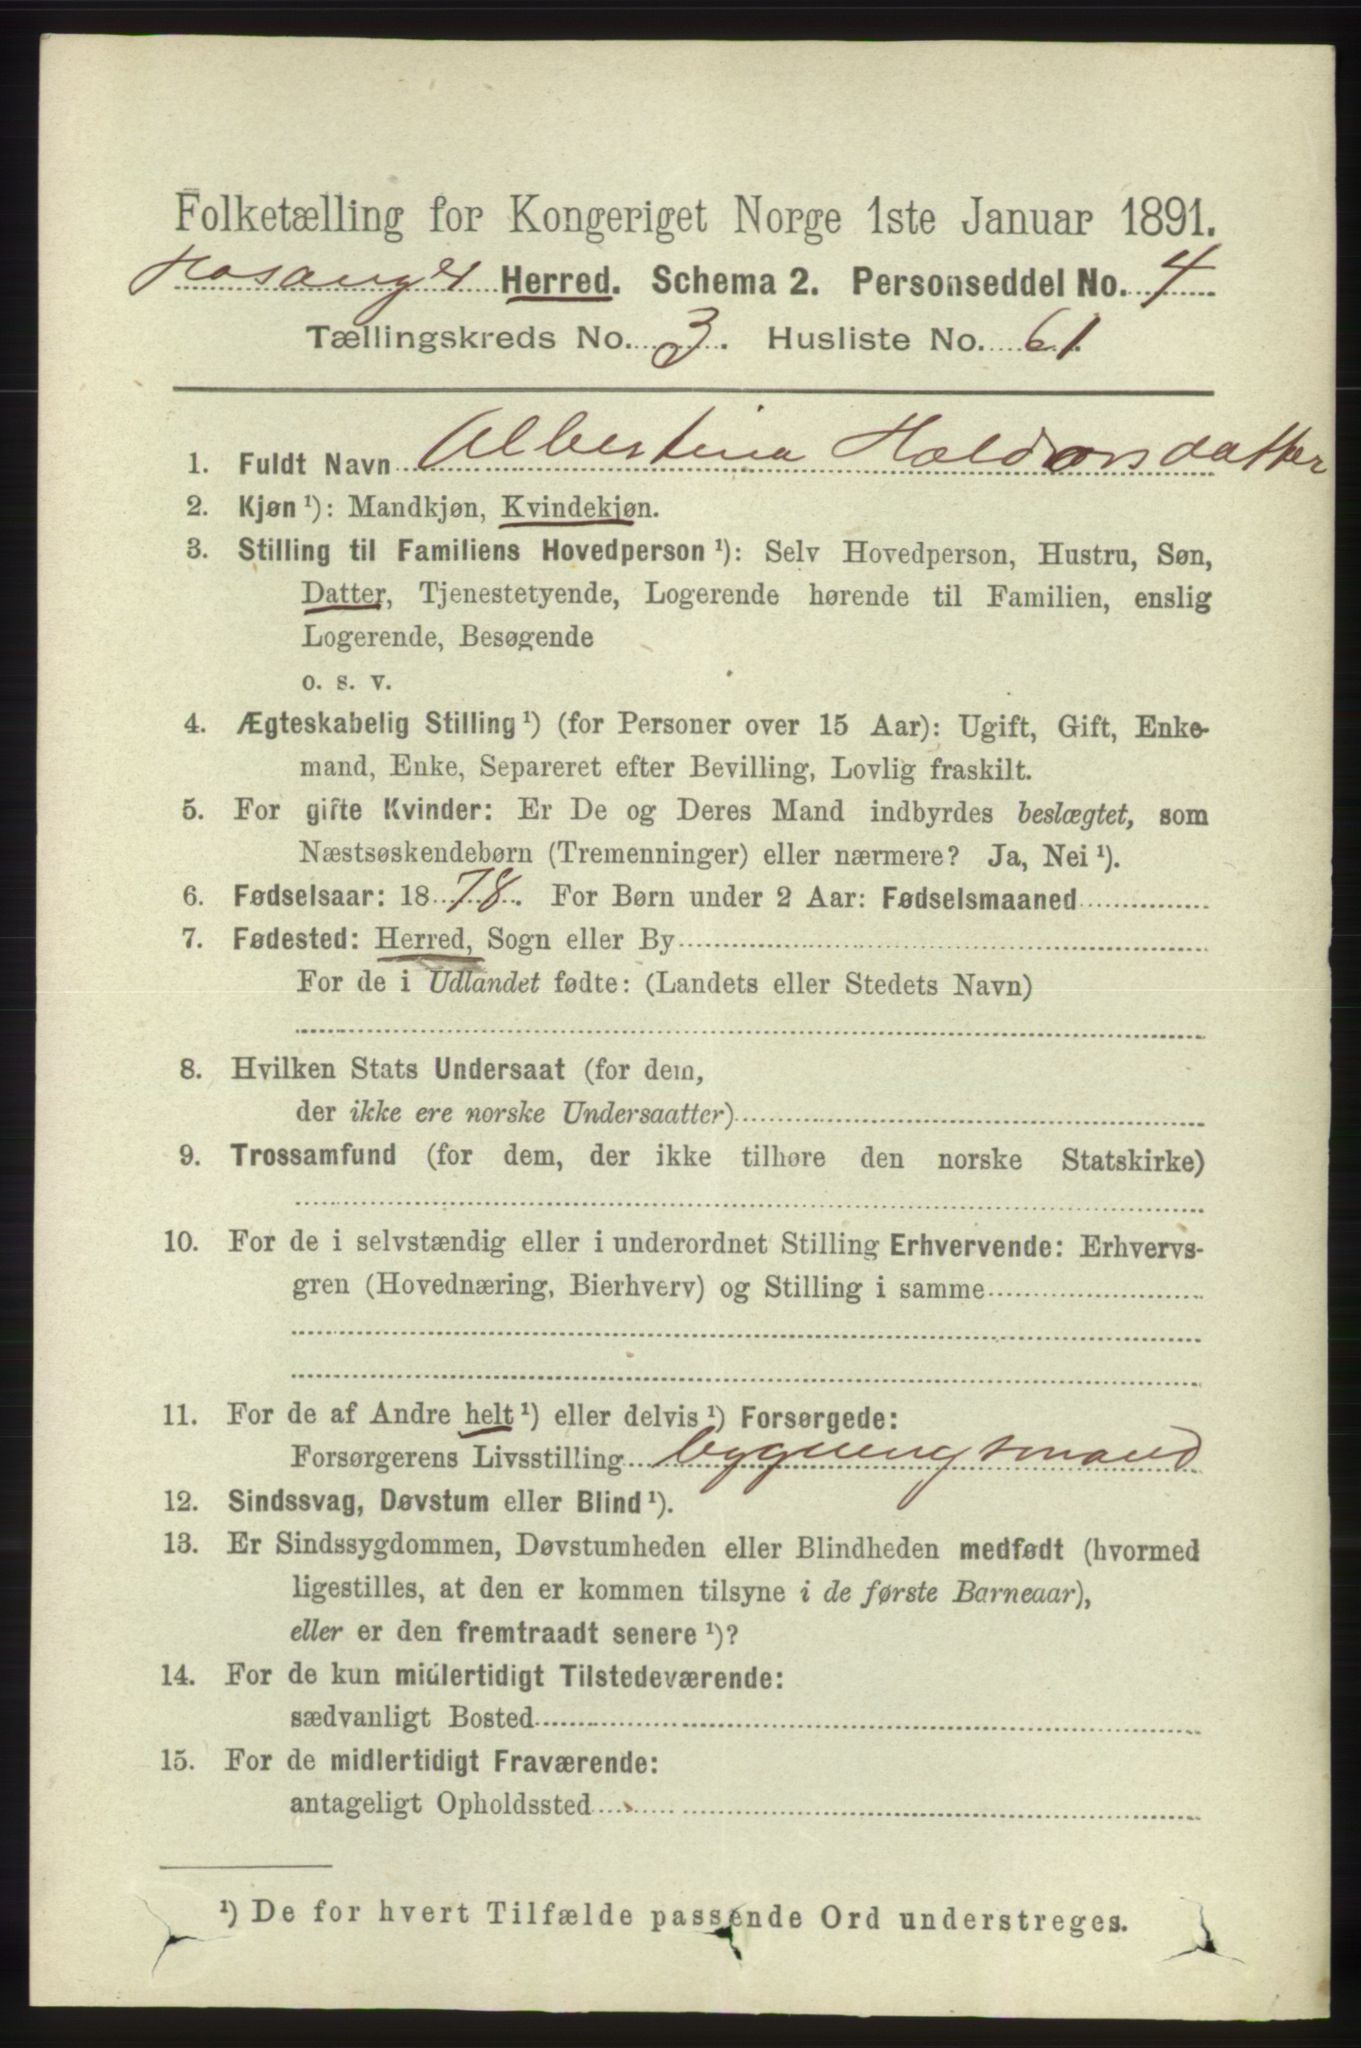 Folketælling for Kongeriget Norge 1ste Januar 1891.
Hosanger Herred. Schema 2. Personseddel No. 4
Tællingskreds No. 3. Husliste No. 61.
1. Fuldt Navn Albertina Haldorsdatter
2. Kjøn ¹): Mandkjøn, Kvindekjøn.
3. Stilling til Familiens Hovedperson ¹): Selv Hovedperson, Hustru, Søn,
Datter, Tjenestetyende, Logerende hørende til Familien, enslig
Logerende, Besøgende
o. s. v.
4. Ægteskabelig Stilling ¹) (for Personer over 15 Aar): Ugift, Gift, Enke-
mand, Enke, Separeret efter Bevilling, Lovlig fraskilt.
5. For gifte Kvinder: Er De og Deres Mand indbyrdes beslægtet, som
Næstsøskendebørn (Tremenninger) eller nærmere? Ja, Nei ¹).
6. Fødselsaar: 1878. For Børn under 2 Aar: Fødselsmaaned
7. Fødested: Herred, Sogn eller By
For de i Udlandet fødte: (Landets eller Stedets Navn)
8. Hvilken Stats Undersaat (for dem,
der ikke ere norske Undersaatter)
9. Trossamfund (for dem, der ikke tilhøre den norske Statskirke)
10. For de i selvstændig eller i underordnet Stilling Erhvervende: Erhvervs-
gren (Hovednæring, Bierhverv) og Stilling i samme
11. For de af Andre helt ¹) eller delvis ¹) Forsørgede:
Forsørgerens Livsstilling bygningsmand
12. Sindssvag, Døvstum eller Blind ¹).
13. Er Sindssygdommen, Døvstumheden eller Blindheden medfødt (hvormed
ligestilles, at den er kommen tilsyne i de første Barneaar),
eller er den fremtraadt senere ¹)?
14. For de kun midlertidigt Tilstedeværende:
sædvanligt Bosted
15. For de midlertidigt Fraværende:
antageligt Opholdssted
¹) De for hvert Tilfælde passende Ord understreges.